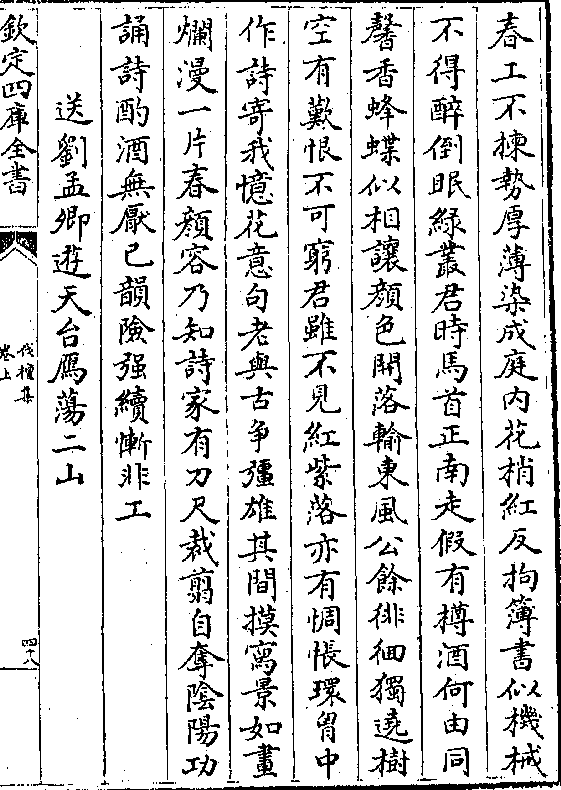 春工不揀勢厚薄染成庭内花梢紅反拘簿書似機械
不得醉倒眠綠叢君時馬首正南走假有樽酒何由同
馨香蜂蝶似相讓顔色開落輸東風公餘徘徊獨遶樹
空有歎恨不可窮君雖不見紅紫落亦有惆悵環胷中
作詩寄我憶花意句老與古爭彊雄其間摸寫景如畫
爛漫一片春顔容乃知詩家有刀尺裁翦自奪陰陽功
誦詩酌酒無厭已韻險强續慚非工
送劉孟卿遊天台鴈蕩二山
欽定四庫全書
伐檀集
卷上
四十八